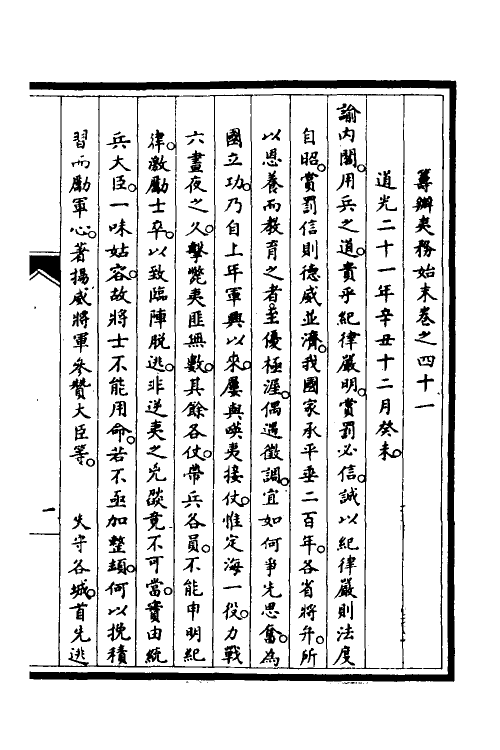 籌辦夷務始末卷之四十一
道光二十一年辛丑十二月癸未。
諭內閣。用兵之道。貴乎紀律嚴明。賞罰必信。誠以紀律嚴則法度
自昭。賞罰信則德威並濟。我國家承平垂二百年。各省將弁。所
以恩養而教育之者。至優極渥。偶遇徵調。宜如何爭先思奮。為
國立功。乃自上年軍興以來。屢與𠸄夷接仗。惟定海一役。力戰
六晝夜之久。擊斃夷匪無數。其餘各仗。帶兵各員。不能申明紀
律。激勵士卒。以致臨陣脫逃。非逆夷之兇燄竟不可當。實由統
兵大臣。一味姑容。故將士不能用命。若不亟加整頓。何以挽積
習而勵軍心。著揚威將軍參贊大臣等。失守各城。首先逃
一